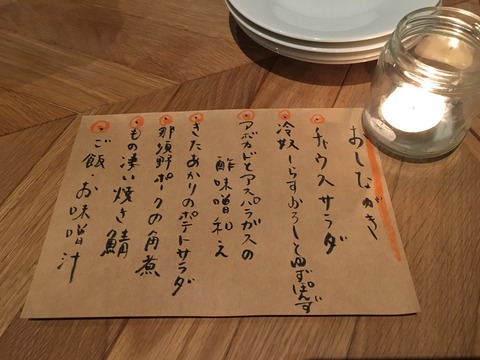 おしながき
チャウスサラダ
冷奴しらすおろしとゆずぽんず
アボカドとアスパラガスの
酢味噌和え
きたあかりのポテトサラダ
那須野ポークの角煮
もの凄い焼き鯖
ご飯・お味噌汁